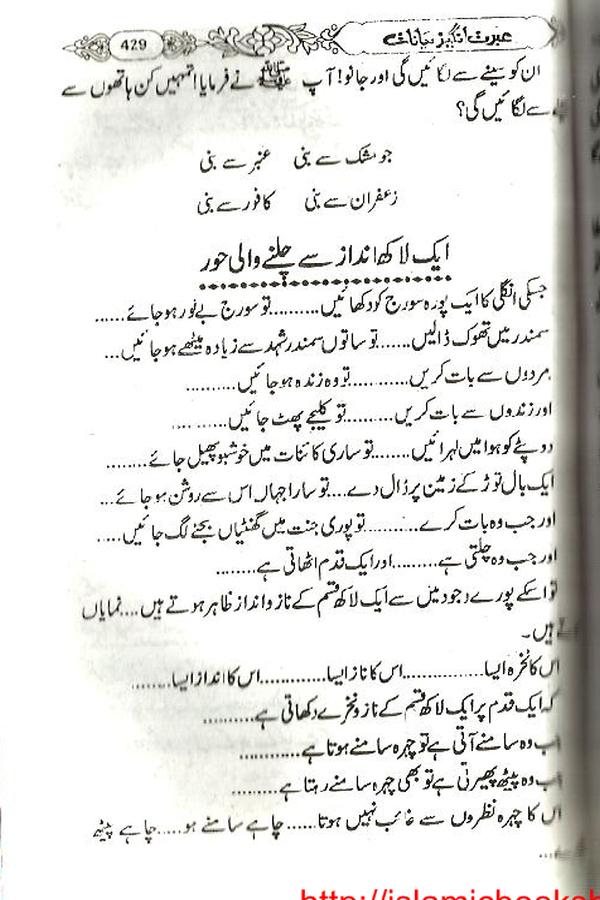 عبرت انگیز بیانات
429
ان کو سینے سے لگائیں گی اور جانو! آپ ﷺ نے فرمایا! تمہیں کن ہاتھوں سے
سے لگائیں گی؟
جو مشک سے بنی عنبر سے بنی
زعفران سے بنی کافور سے بنی
ایک لاکھ انداز سے چلنے والی حور
جسکی انگلی کا ایک پورہ سورج کو دکھائیں.........تو سورج بے نور ہو جائے......
سمندر میں تھوک ڈالیں.......تو ساتوں سمندر شہد سے زیادہ میٹھے ہو جائیں...
مردوں سے بات کریں..........تو وہ زندہ ہو جائیں..........
اور زندوں سے بات کریں.........تو کلیجے پھٹ جائیں..........
دوپٹے کو ہوا میں لہرائیں.......تو ساری کائنات میں خوشبو پھیل جائے........
ایک بال توڑ کے زمین پر ڈال دے....تو سارا جہاں اس سے روشن ہو جائے...
اور جب وہ بات کرے..........تو پوری جنت میں گھنٹیاں بجنے لگ جائیں.....
اور جب وہ چلتی ہے.........اور ایک قدم اٹھاتی ہے........
تو اسکے پورے وجود میں سے ایک لاکھ قسم کے ناز و انداز ظاہر ہوتے ہیں....نمایاں
ہیں۔
اس کا نخرہ ایسا..............اس کا ناز ایسا.............اس کا انداز ایسا........
کہ ایک قدم پر ایک لاکھ قسم کے ناز و نخرے دکھاتی ہے.........
جب وہ سامنے آتی ہے تو چہرہ سامنے ہوتا ہے............
جب وہ پیٹھ پھیرتی ہے تو بھی چہرہ سامنے رہتا ہے.........
اس کا چہرہ نظروں سے غائب نہیں ہوتا......چاہے سامنے ہو.....چاہے پیٹھ